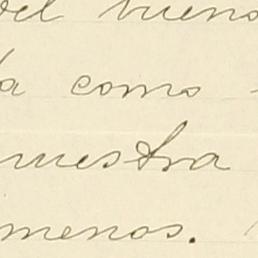 del bueno
a como
nuestra
menos.